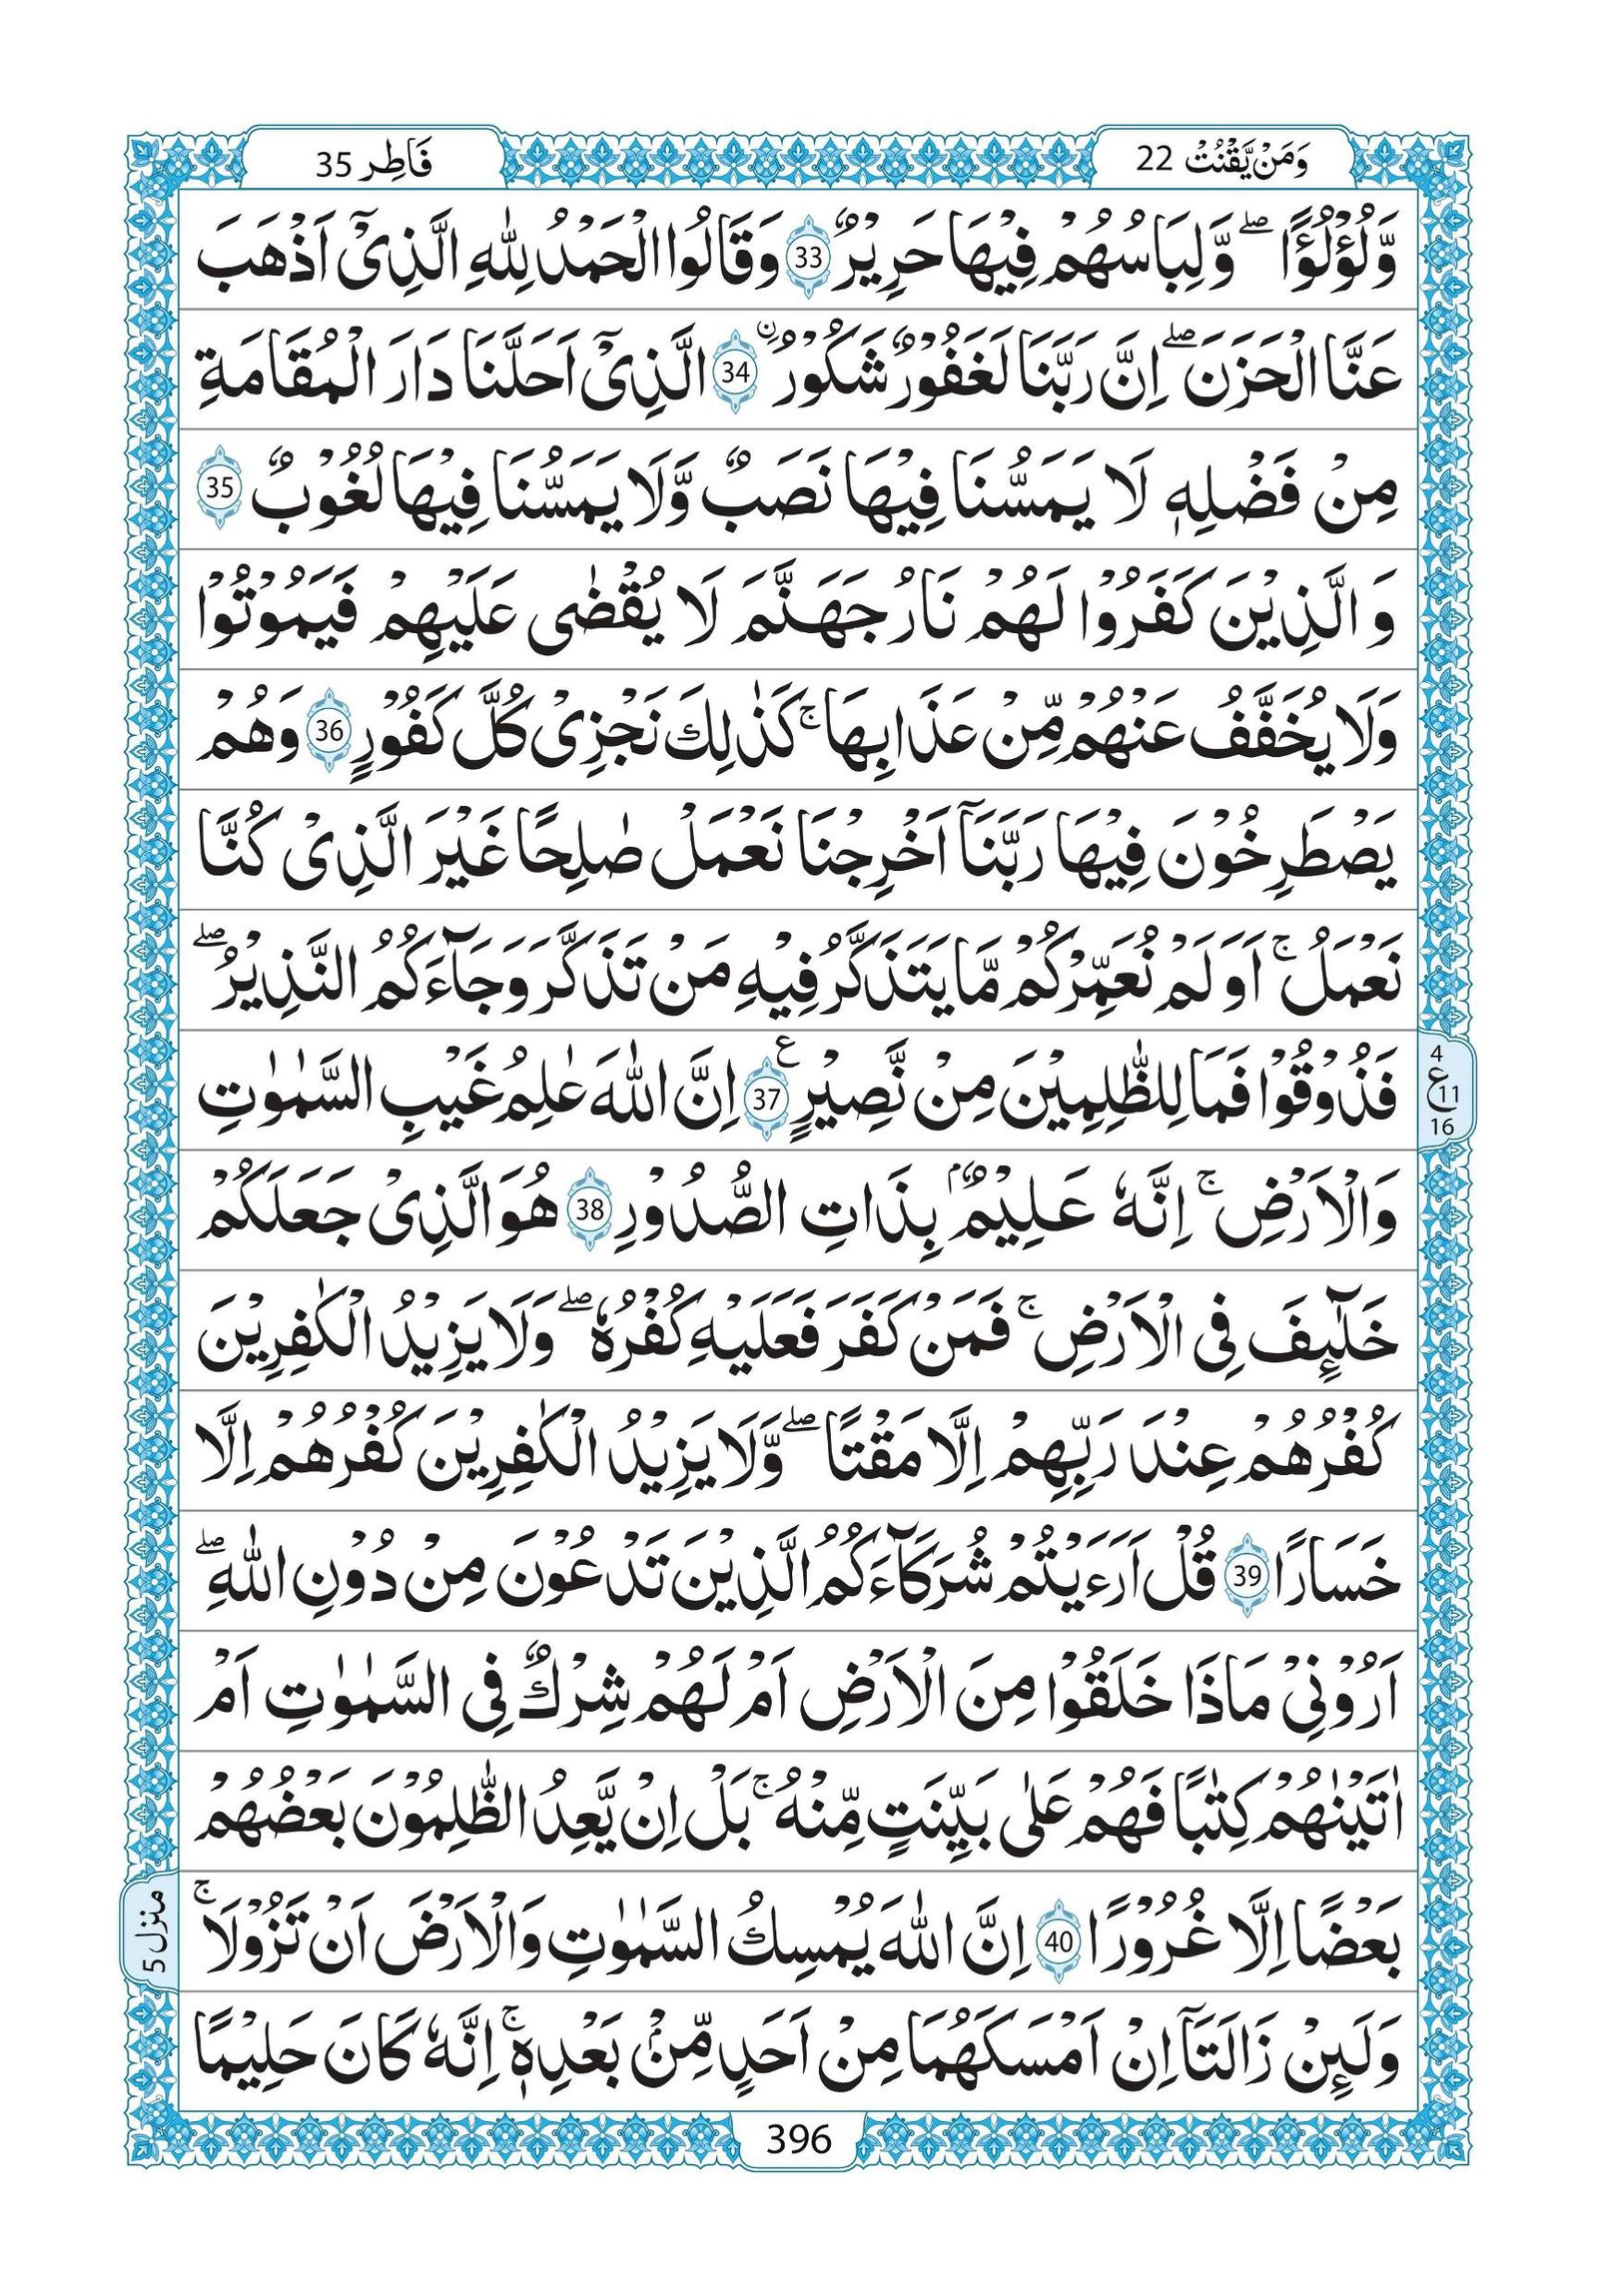 وَمَنْ يَّقْنُتْ 22
فَاطِر 35
وَّلُؤْلُؤًا ۖ وَّلِبَاسُهُمْ فِيْهَا حَرِيْرٌ 33 وَقَالُوا الْحَمْدُ لِلّٰهِ الَّذِىْٓ اَذْهَبَ
عَنَّا الْحَزَنَ ۖ اِنَّ رَبَّنَا لَغَفُوْرٌ شَكُوْرٌ ۙ 34 الَّذِىْٓ اَحَلَّنَا دَارَ الْمُقَامَةِ
مِنْ فَضْلِهٖ لَا يَمَسُّنَا فِيْهَا نَصَبٌ وَّلَا يَمَسُّنَا فِيْهَا لُغُوْبٌ 35
وَالَّذِيْنَ كَفَرُوْا لَهُمْ نَارُ جَهَنَّمَ لَا يُقْضٰى عَلَيْهِمْ فَيَمُوْتُوْا
وَلَا يُخَفَّفُ عَنْهُمْ مِّنْ عَذَابِهَا ۚ كَذٰلِكَ نَجْزِىْ كُلَّ كَفُوْرٍ 36 وَهُمْ
يَصْطَرِخُوْنَ فِيْهَا رَبَّنَآ اَخْرِجْنَا نَعْمَلْ صٰلِحًا غَيْرَ الَّذِىْ كُنَّا
نَعْمَلُ ۚ اَوَلَمْ نُعَمِّرْكُمْ مَّا يَتَذَكَّرُ فِيْهِ مَنْ تَذَكَّرَ وَجَآءَكُمُ النَّذِيْرُ ۖ
فَذُوْقُوْا فَمَا لِلظّٰلِمِيْنَ مِنْ نَّصِيْرٍ ع 37 اِنَّ اللّٰهَ عٰلِمُ غَيْبِ السَّمٰوٰتِ
4
ع 11
16
وَالْاَرْضِ ۚ اِنَّهٗ عَلِيْمٌۢ بِذَاتِ الصُّدُوْرِ 38 هُوَ الَّذِىْ جَعَلَكُمْ
خَلٰٓئِفَ فِى الْاَرْضِ ۚ فَمَنْ كَفَرَ فَعَلَيْهِ كُفْرُهٗ ۖ وَلَا يَزِيْدُ الْكٰفِرِيْنَ
كُفْرُهُمْ عِنْدَ رَبِّهِمْ اِلَّا مَقْتًا ۖ وَّلَا يَزِيْدُ الْكٰفِرِيْنَ كُفْرُهُمْ اِلَّا
خَسَارًا 39 قُلْ اَرَءَيْتُمْ شُرَكَآءَكُمُ الَّذِيْنَ تَدْعُوْنَ مِنْ دُوْنِ اللّٰهِ ۖ
اَرُوْنِىْ مَاذَا خَلَقُوْا مِنَ الْاَرْضِ اَمْ لَهُمْ شِرْكٌ فِى السَّمٰوٰتِ اَمْ
اٰتَيْنٰهُمْ كِتٰبًا فَهُمْ عَلٰى بَيِّنَتٍ مِّنْهُ ۚ بَلْ اِنْ يَّعِدُ الظّٰلِمُوْنَ بَعْضُهُمْ
بَعْضًا اِلَّا غُرُوْرًا 40 اِنَّ اللّٰهَ يُمْسِكُ السَّمٰوٰتِ وَالْاَرْضَ اَنْ تَزُوْلَا ۚ
منزل 5
وَلَئِنْ زَالَتَآ اِنْ اَمْسَكَهُمَا مِنْ اَحَدٍ مِّنْۢ بَعْدِهٖ ۚ اِنَّهٗ كَانَ حَلِيْمًا
396